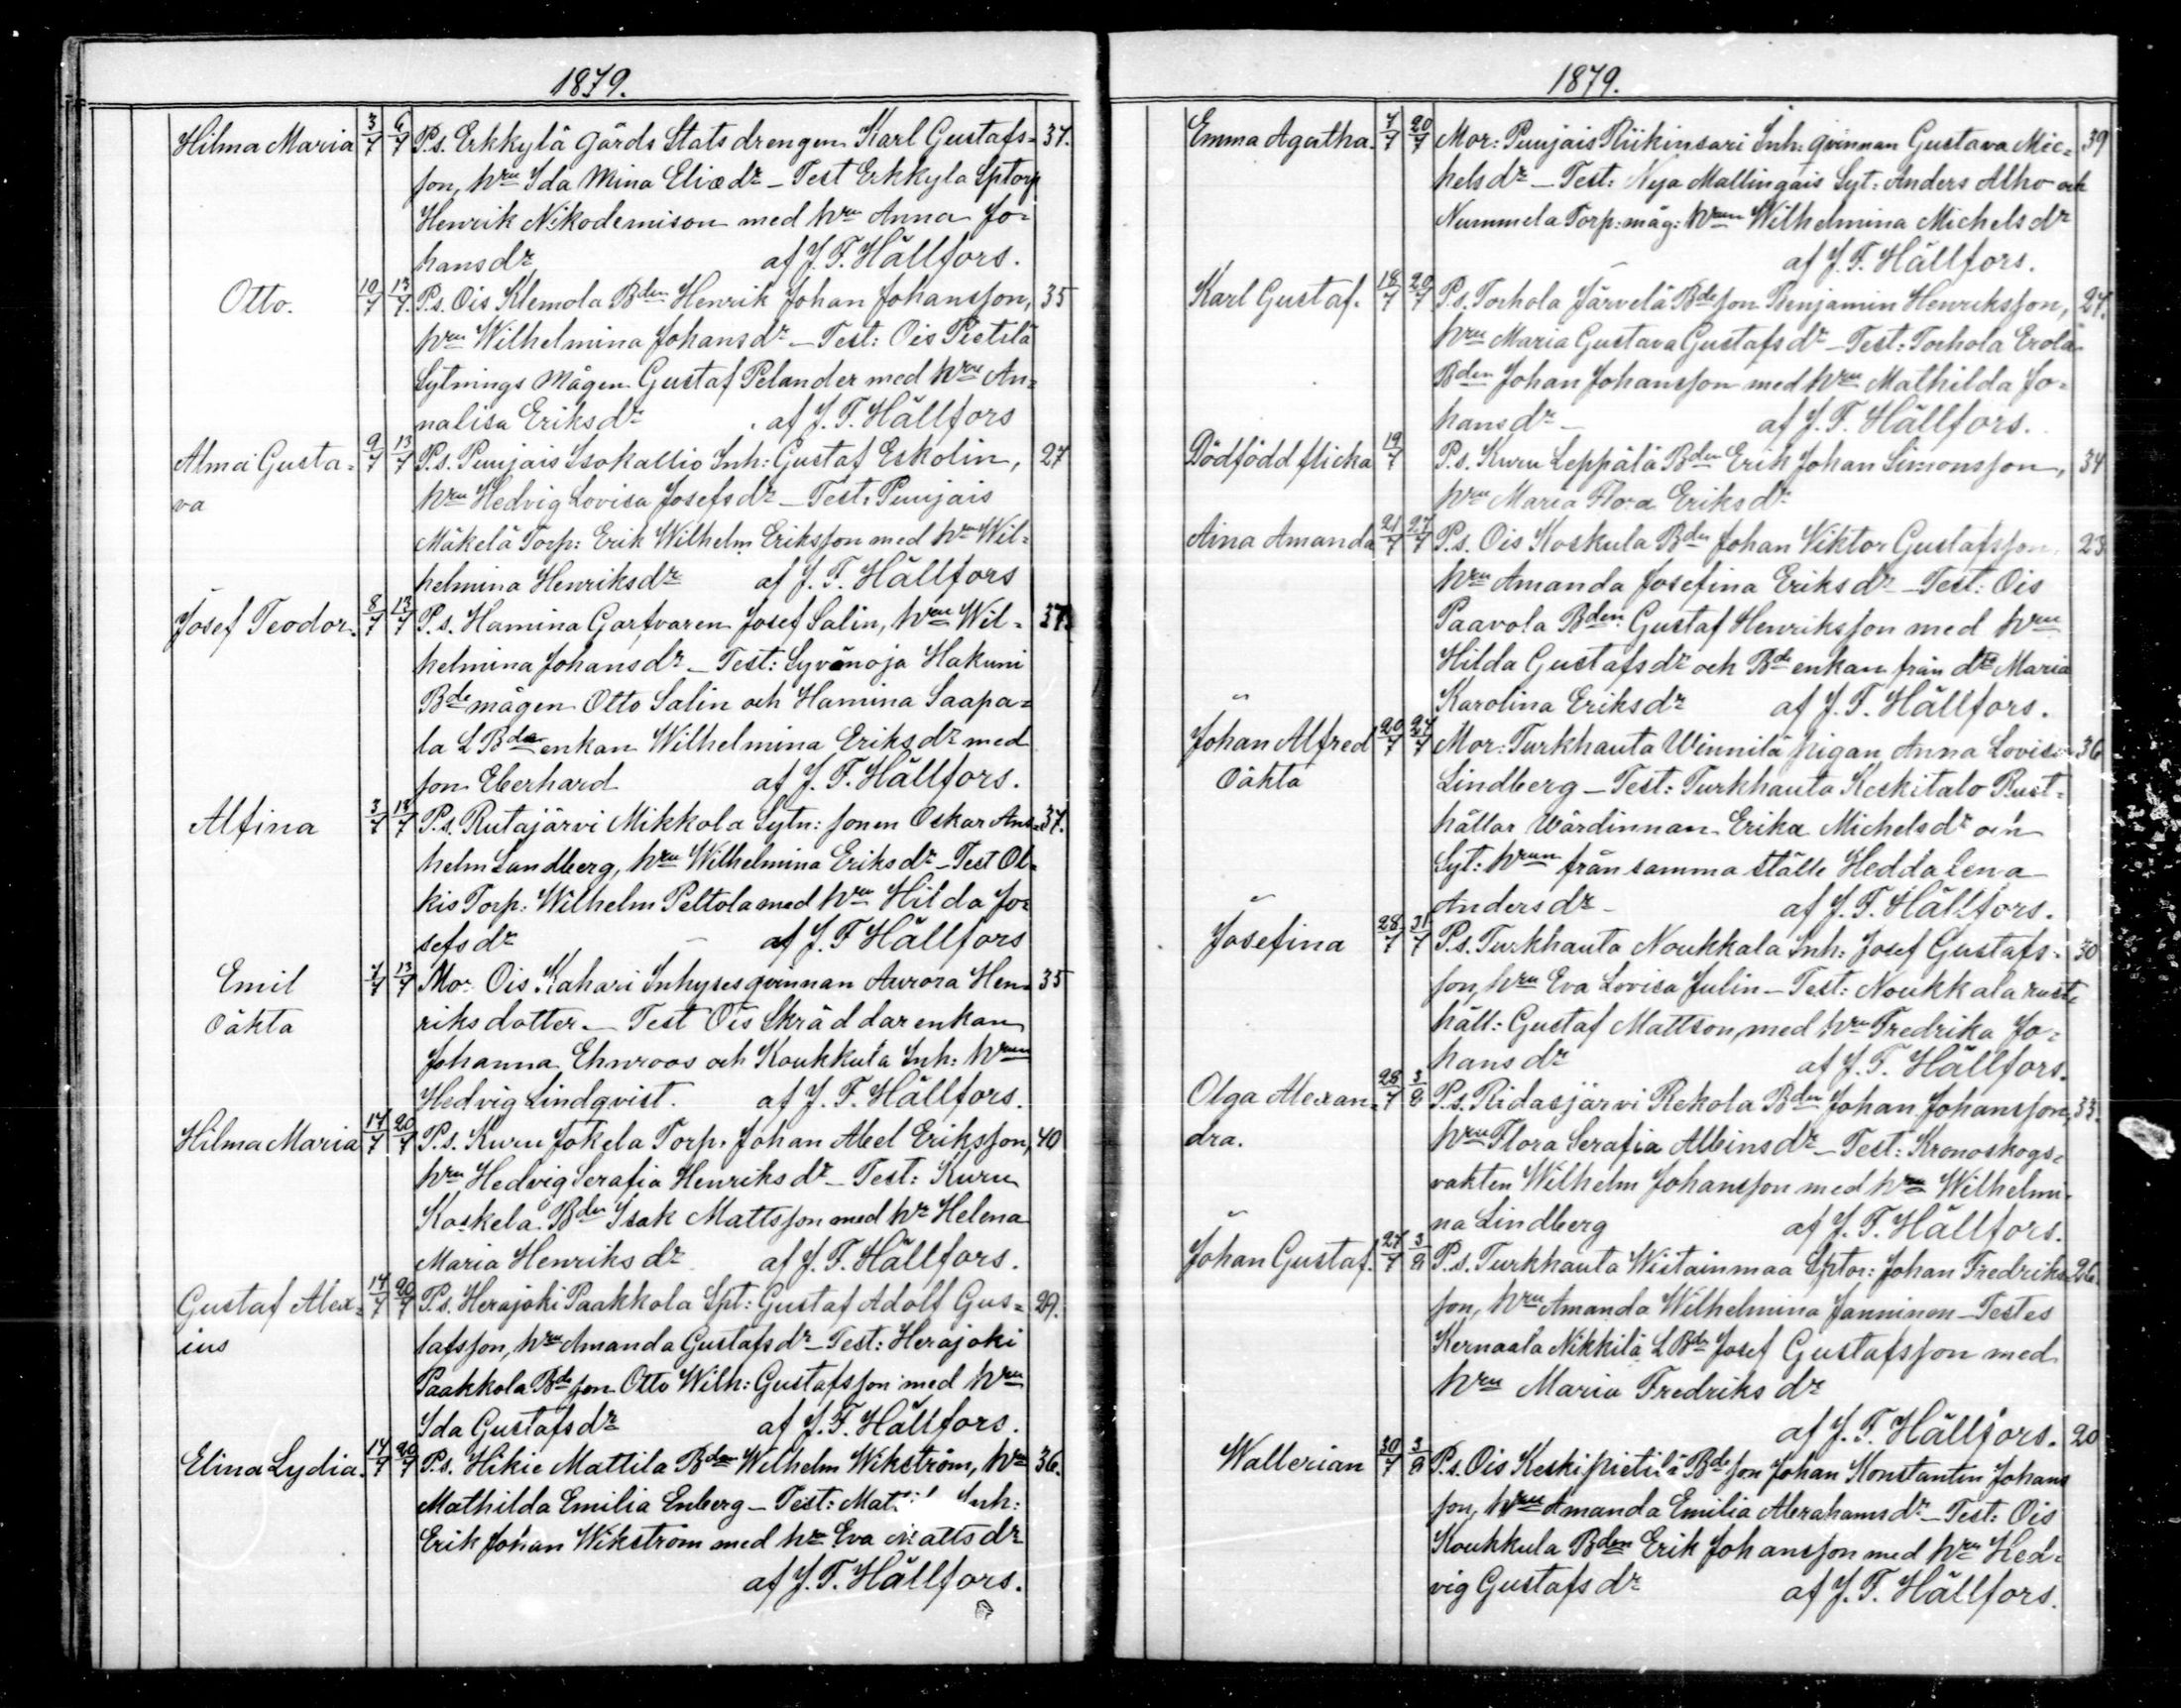 1879.
Hilma Maria 3/7 6/7 P.s. Erkkylä gårds Statsdrengen Karl Gustafs= 37.
son, hru Ida Mina Eliædr – Test Erkkyla Sptorp
Henrik Nikodemison med hru Anna Jo=
hansdr af J. F. Hällfors.
Otto. 10/7 13/7 P.s. Ois Klemola Bden Henrik Johan Johansson, 35
hru Wilhelmina Johansdr – Test: Ois Pietilä
Sytnings Mågen Gustaf Pelander med hru An=
nalisa Eriksdr af J. F. Hällfors
Alma Gusta= 9/7 13/7 P.s. Punjais Isokallio Inh: Gustaf Eskolin, 27
va hru Hedvig Lovisa Josefsdr – Test: Punjais
Mäkelä Torp: Erik Wilhelm Eriksson med hru Wil=
helmina Henriksdr af J. F. Hällfors
Josef Teodor. 8/7 13/7 P.s. Hamina Garfvaren Josef Salin, hru Wil= 37.
helmina Johansdr – Test: Syvänoja Hakuni
Bde mågen Otto Salin och Hamina Saapa=
la L Bde enkan Wilhelmina Eriksdr med
son Eberhard af J. F. Hällfors.
Alfina 3/7 13/7 P.s. Rutajärvi Mikkola Sytn: sonen Oskar Ans= 37.
helm Sandberg, hru Wilhelmina Eriksdr – Test Ol=
kis Torp: Wilhelm Peltola med hru Hilda Jo=
sefsdr – af J. F Hällfors
Emil 7/7 13/7 Mor Ois Kahari Inhysesqvinnan Aurora Hen= 35
Oäkta riksdotter – Test Ois Skräddarenkan
Johanna Ehnroos och Koukkula Inh: hrun
Hedvig Lindqvist. af J. F. Hällfors.
Hilma Maria 14/7 20/7 P.s. Kuru Jokela Torp. Johan Abel Eriksson, 40
hru Hedvig Serafia Henriksdr – Test: Kuru
Koskela Bden Isak Mattsson med hr Helena
Maria Henriksdr af J. F. Hällfors.
Gustaf Alex= 14/7 20/7 P.s. Herajoki Paakkola Spt: Gustaf Adolf Gus= 29.
ius tafsson, hru Amanda Gustafsdr – Test: Herajoki
Paakkola Bde son Otto Wilh: Gustafsson med hru
Ida Gustafsdr af J. F. Hällfors.
Elina Lydia. 14/7 20/7 P.s. Hikie Mattila Bden Wilhelm Wikström, hru 36.
Mathilda Emilia Enberg – Test: Inh:
Erik Johan Wikstrom med hru Eva Mattsdr
af J. F. Hällfors.
1879.
Emma Agatha. 7/7 20/7 Mor: Punjais Riikinsari Inh: qvinnan Gustava Mic= 39
helsdr – Test: Nya Mallingais Syt: Anders Alho och
Nummela Torp: måg: hrun Wilhelmina Michelsdr
af J. F. Hällfors.
Karl Gustaf. 18/7 20/7 P.s. Torhola Järvelä Bde son Benjamin Henriksson, 27.
hru Maria Gustava Gustafsdr – Test: Torhola Erola
Bden Johan Johansson med hru Mathilda Jo=
hansdr – af J. F. Hällfors.
Dödfödd flicka 19/7 P.s. Kuru Leppälä Bden Erik Johan Simonsson, 34
hru Maria Flora Eriksdr
Aina Amanda 21/7 27/7 P.s. Ois Koskula Bden Johan Viktor Gustafsson, 23.
hru Amanda Josefina Eriksdr – Test: Ois
Paavola Bden Gustaf Henriksson med hru
Hilda Gustafsdr och Bde enkan från dto Maria
Karolina Eriksdr af J. F. Hällfors.
Johan Alfred 20/7 27/7 Mor: Turkhauta Winnilä pigan Anna Lovisa 36
Oäkta Lindberg – Test: Turkhauta Keskitalo Rust=
hållar Wärdinnan Erika Michelsdr och
Syt: hrun från samma ställe Heddalena
Andersdr – af J. F. Hällfors.
Josefina 28/7 31/7 P.s. Turkhauta Noukkala Inh: Josef Gustafs= 30
son, hru Eva Lovisa Julin – Test: Noukkala rust=
håll: Gustaf Mattson, med hru Fredrika Jo=
hansdr af J. F. Hällfors.
Olga Alexan= 28/7 3/8 P.s. Ridasjärvi Rekola Bden Johan Johansson, 33.
dra. hru Flora Serafia Albinsdr – Test: Kronoskogs=
vakten Wilhelm Johansson med hru Wilhelmi=
na Lindberg af J. F. Hällfors.
Johan Gustaf. 27/7 3/8 P.s. Turkhauta Wistainmaa Sptor: Johan Fredriks 26.
son, hru Amanda Wilhelmina Janninen – Testes
Kernaala Nikkilä L Bde Josef Gustafsson med
hru Maria Fredriksdr
af J. F. Hällfors.
Wallerian 30/7 3/8 P.s. Ois Keskipietilä Bde son Johan Konstantin Johans 20
son, hru Amanda Emilia Abrahamsdr – Test: Ois
Koukkula Bden Erik Johansson med hru Hed=
vig Gustafsdr af J. F. Hällfors.